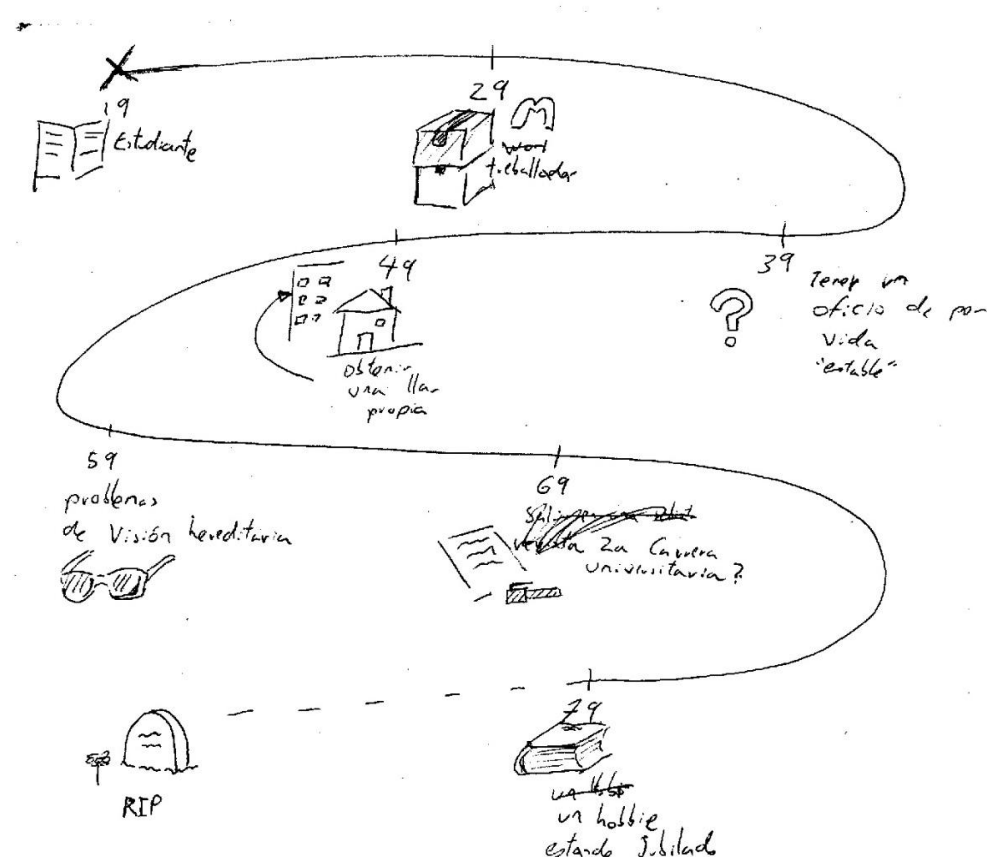 19
Estudiante
29
treballador
39
Tener un
oficio de por
vida
"estable"
49
obtenir
una llar
propia
59
problemas
de Visión hereditaria
69
2a Carrera
universitaria?
79
un hobbie
estando Jubilado
RIP